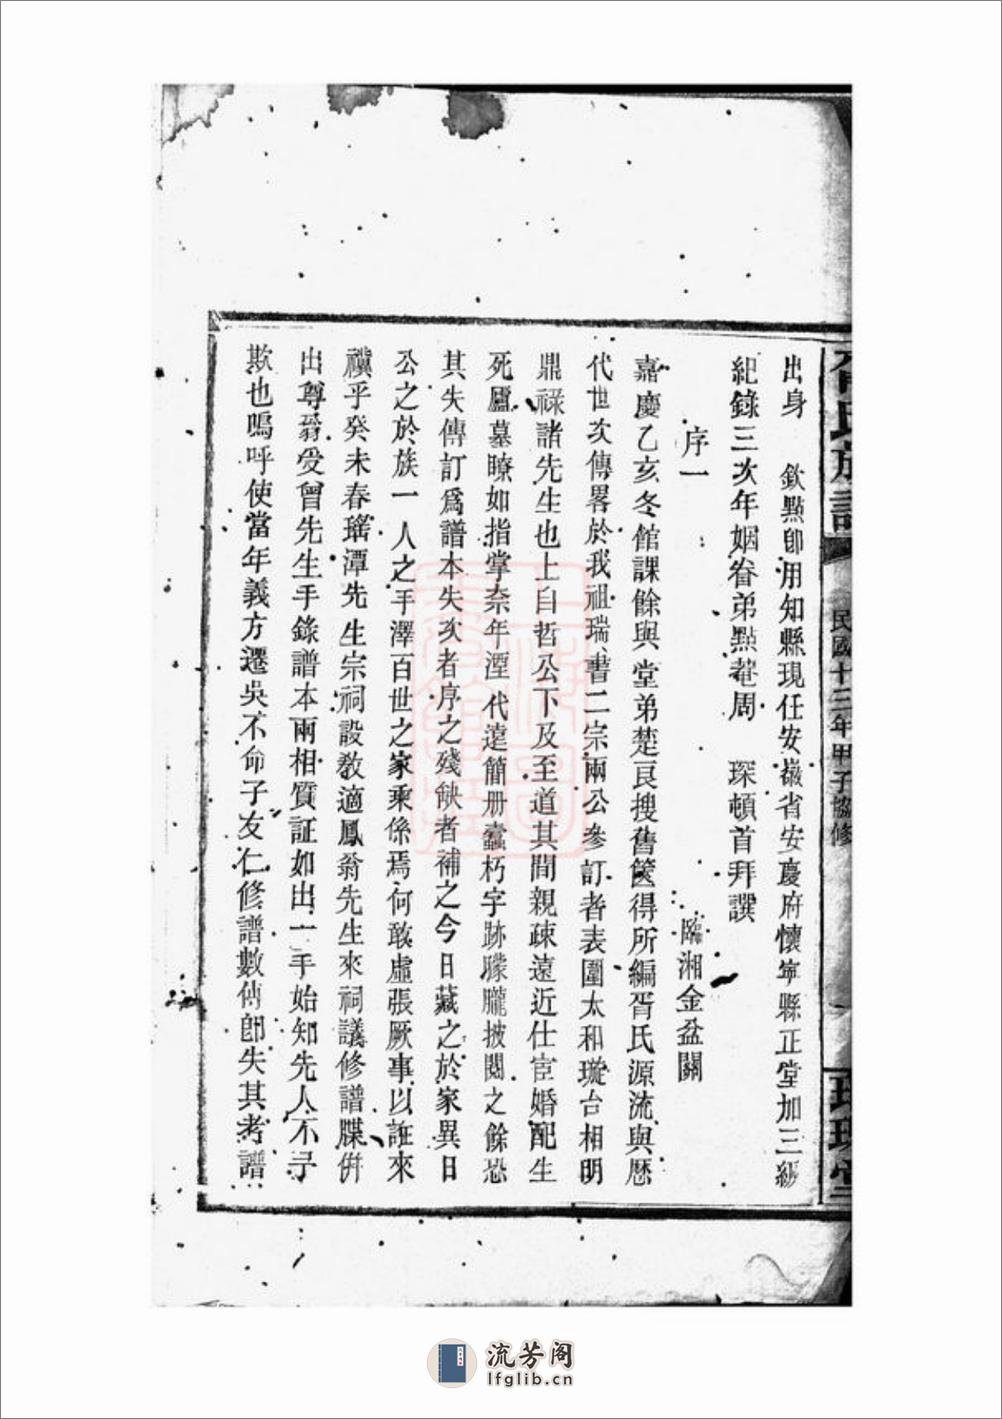 出身　欽點卽用知縣現任安徽省安慶府懷寧縣正堂加三級
紀錄三次年姻眷弟點菴周　琛頓首拜譔
序一　臨湘金盆關
嘉慶乙亥冬館課餘與堂弟楚良搜舊篋得所編胥氏源流與歷
代世次傳畧於我祖瑞書二宗兩公參訂者表圍太和璇台相明
鼎祿諸先生也上自哲公下及至道其間親疎遠近仕宦婚配生
死廬墓瞭如指掌奈年湮代遠簡册蠹朽字跡朦朧披閱之餘恐
其失傳訂爲譜本失次者序之殘缺者補之今日藏之於家異日
公之於族一人之手澤百世之家乘係焉何敢虛張厥事以誑來
禩乎癸未春瑤潭先生宗祠設敎適鳳翁先生來祠議修譜牒倂
出尊翁受曾先生手錄譜本兩相質証如出一手始知先人不予
欺也嗚呼使當年義方遷吳不命子友仁修譜數傳卽失其考譜
胥氏族譜
民國十三年甲子協修
流芳阁
lfglib.cn